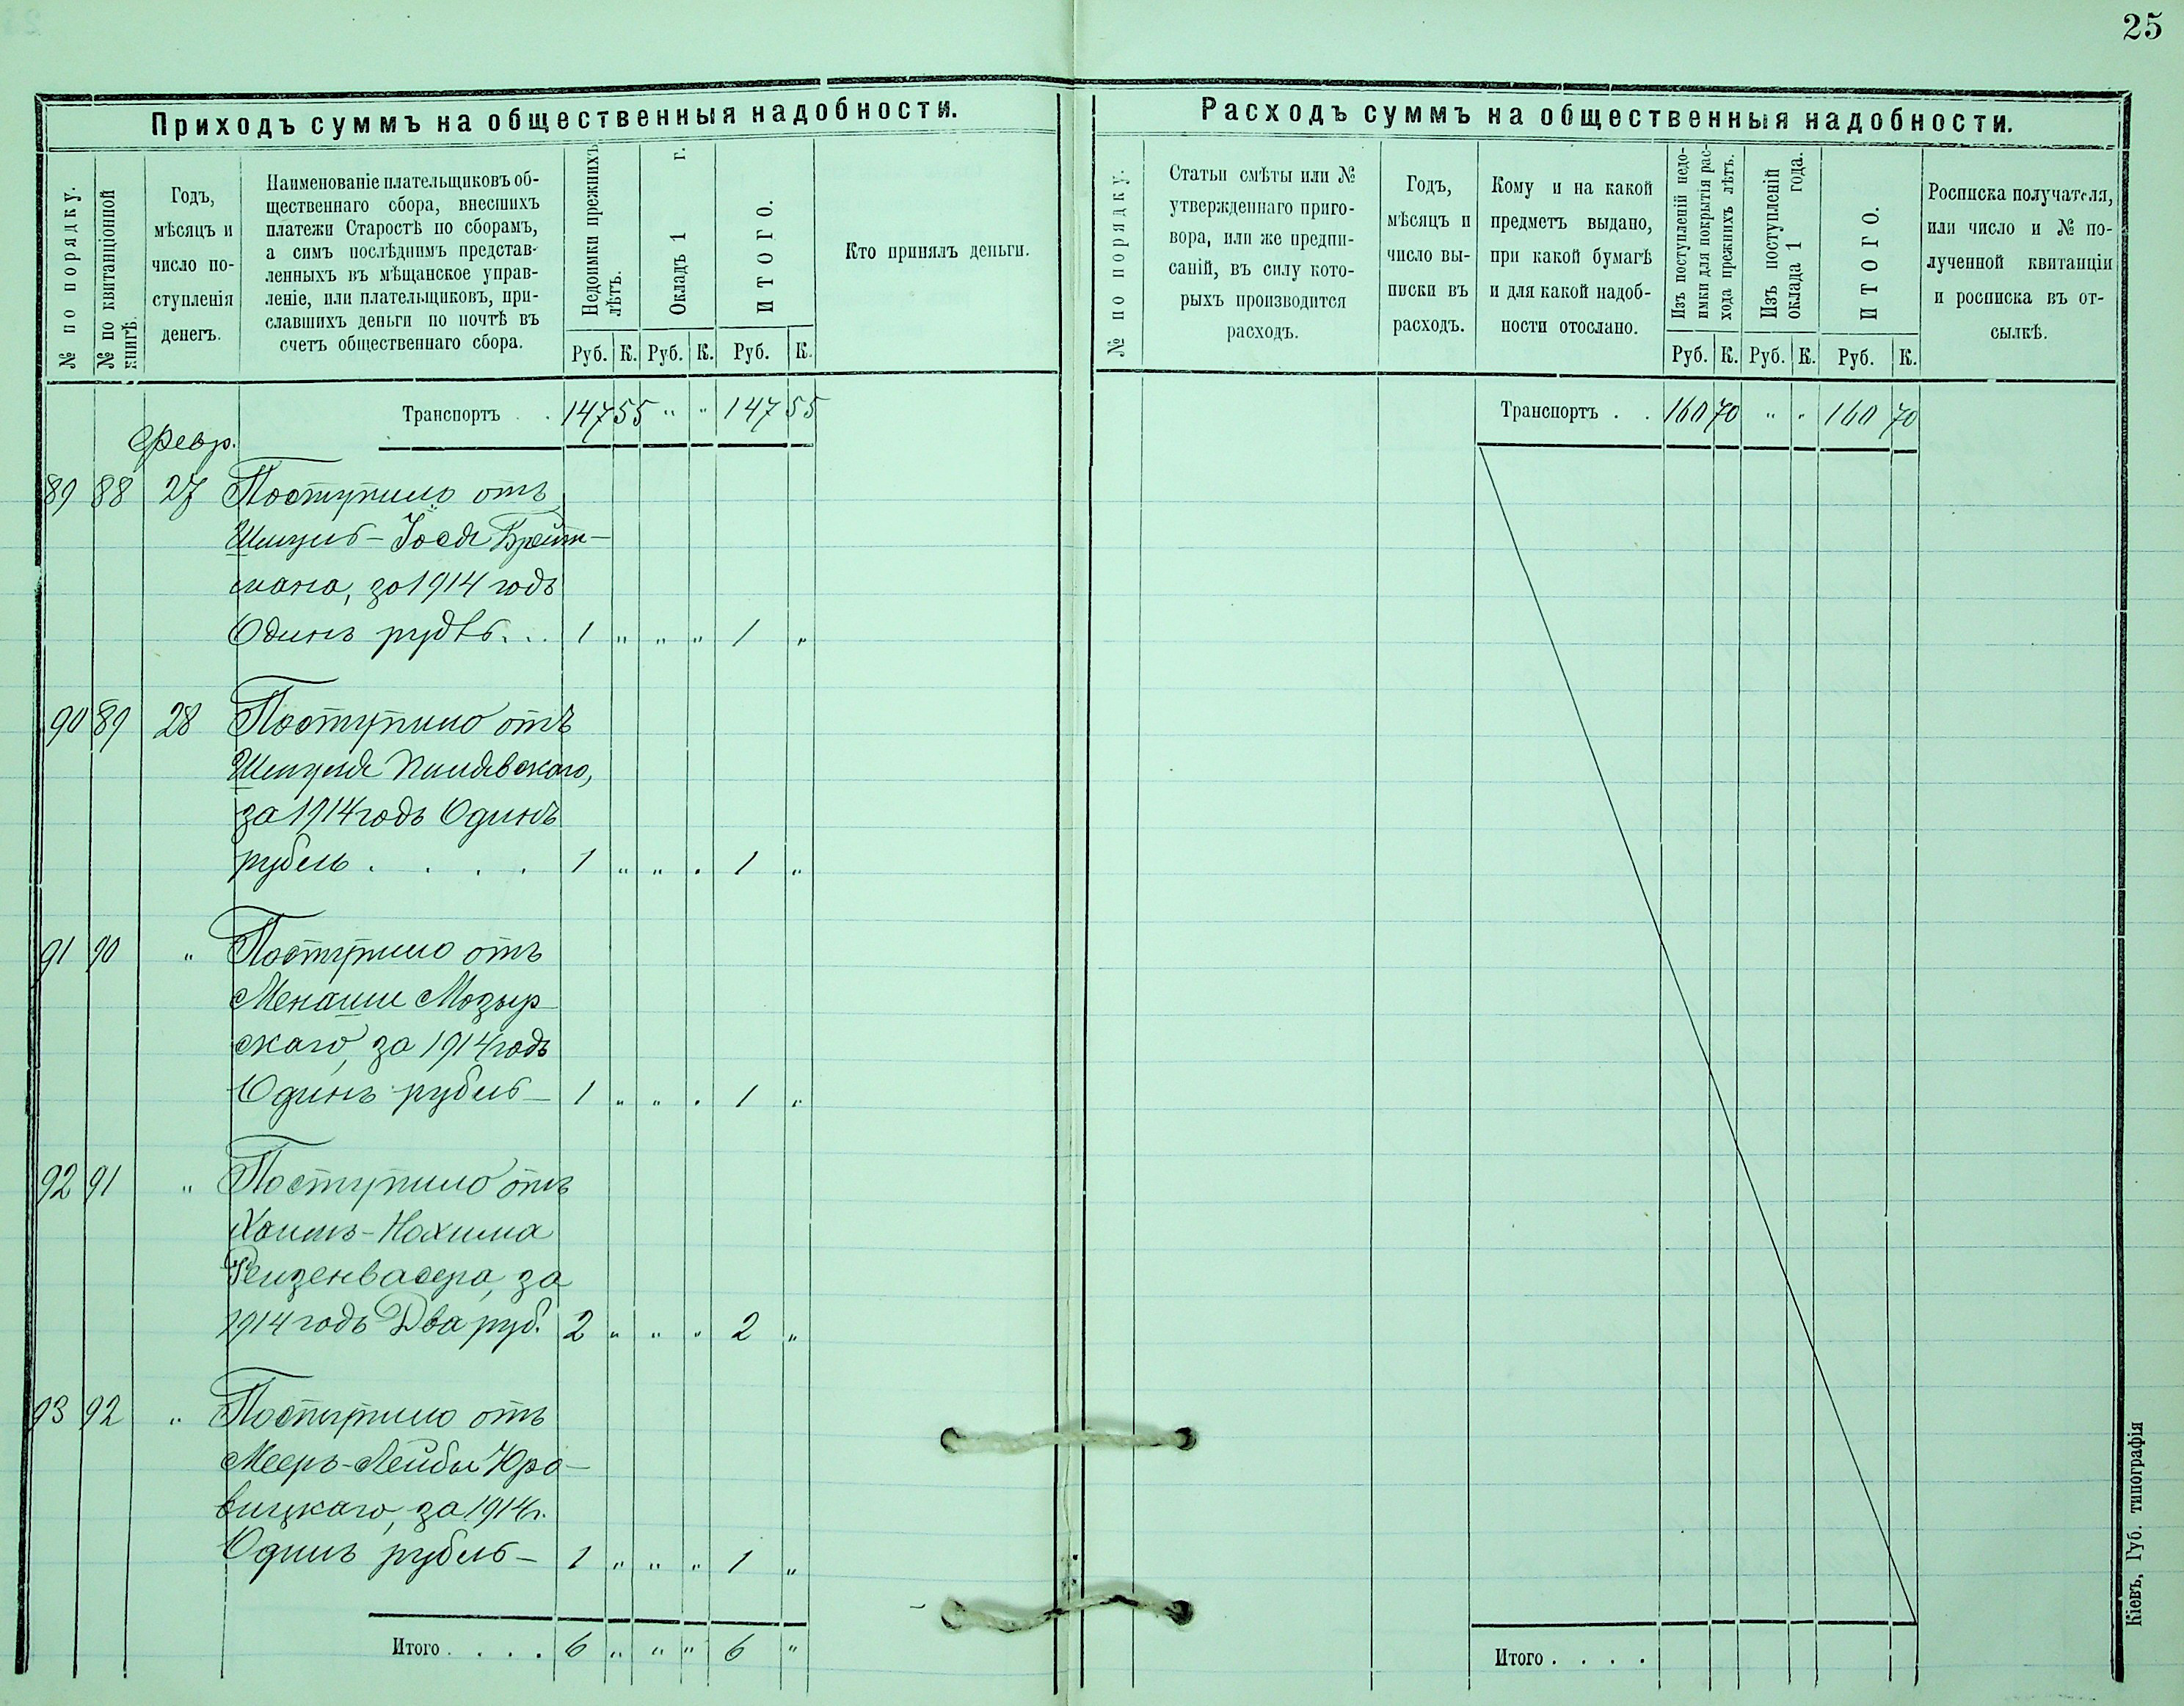 25
Приходъ суммъ на общественныя надобности.
№ по порядку.
№ по квитанціонной
книгѣ.
Годъ,
мѣсяцъ и
число по-
ступленія
денегъ.
Наименованіе плательщиковъ об-
щественнаго сбора, внесшихъ
платежи Старостѣ по сборамъ,
а симъ послѣднимъ представ-
ленныхъ въ мѣщанское управ-
леніе, или плательщиковъ, при-
славшихъ деньги по почтѣ въ
счетъ общественнаго сбора.
Недоимки прежнихъ
лѣтъ.
Окладъ 1 г.
ИТОГО.
Руб. К. Руб. К. Руб. К.
Кто принялъ деньги.
Транспортъ . . 147 55 " " 147 55
Февр.
89 88 27 Поступило отъ
Шмуль-Іося Брейт-
мана, за 1914 годъ
Одинъ рубль... 1 " " " 1 "
90 89 28 Поступило отъ
Шмуля Пилявскаго,
за 1914 годъ Одинъ
рубль . . . . 1 " " " 1 "
91 90 " Поступило отъ
Менаши Мозыр-
скаго, за 1914 годъ
Одинъ рубль - 1 " " " 1 "
92 91 " Поступило отъ
Хаимъ-Нахима
Рейзенвасера, за
1914 годъ Два руб. 2 " " " 2 "
93 92 " Поступило отъ
Мееръ-Лейбы Юро-
вицкаго, за 1914 г.
Одинъ рубль - 1 " " " 1 "
Итого . . . . 6 " " " 6 "
Расходъ суммъ на общественныя надобности.
№ по порядку.
Статьи смѣты или №
утвержденнаго приго-
вора, или же предпи-
саній, въ силу кото-
рыхъ производится
расходъ.
Годъ,
мѣсяцъ и
число вы-
писки въ
расходъ.
Кому и на какой
предметъ выдано,
при какой бумагѣ
и для какой надоб-
ности отослано.
Изъ поступленій недо-
имки для покрытія рас-
хода прежнихъ лѣтъ.
Изъ поступленій
оклада 1 года.
ИТОГО.
Руб. К. Руб. К. Руб. К.
Росписка получателя,
или число и № по-
лученной квитанціи
и росписка въ от-
сылкѣ.
Транспортъ . . 160 70 " " 160 70
Итого . . . .
Кіевъ, Губ. типографія